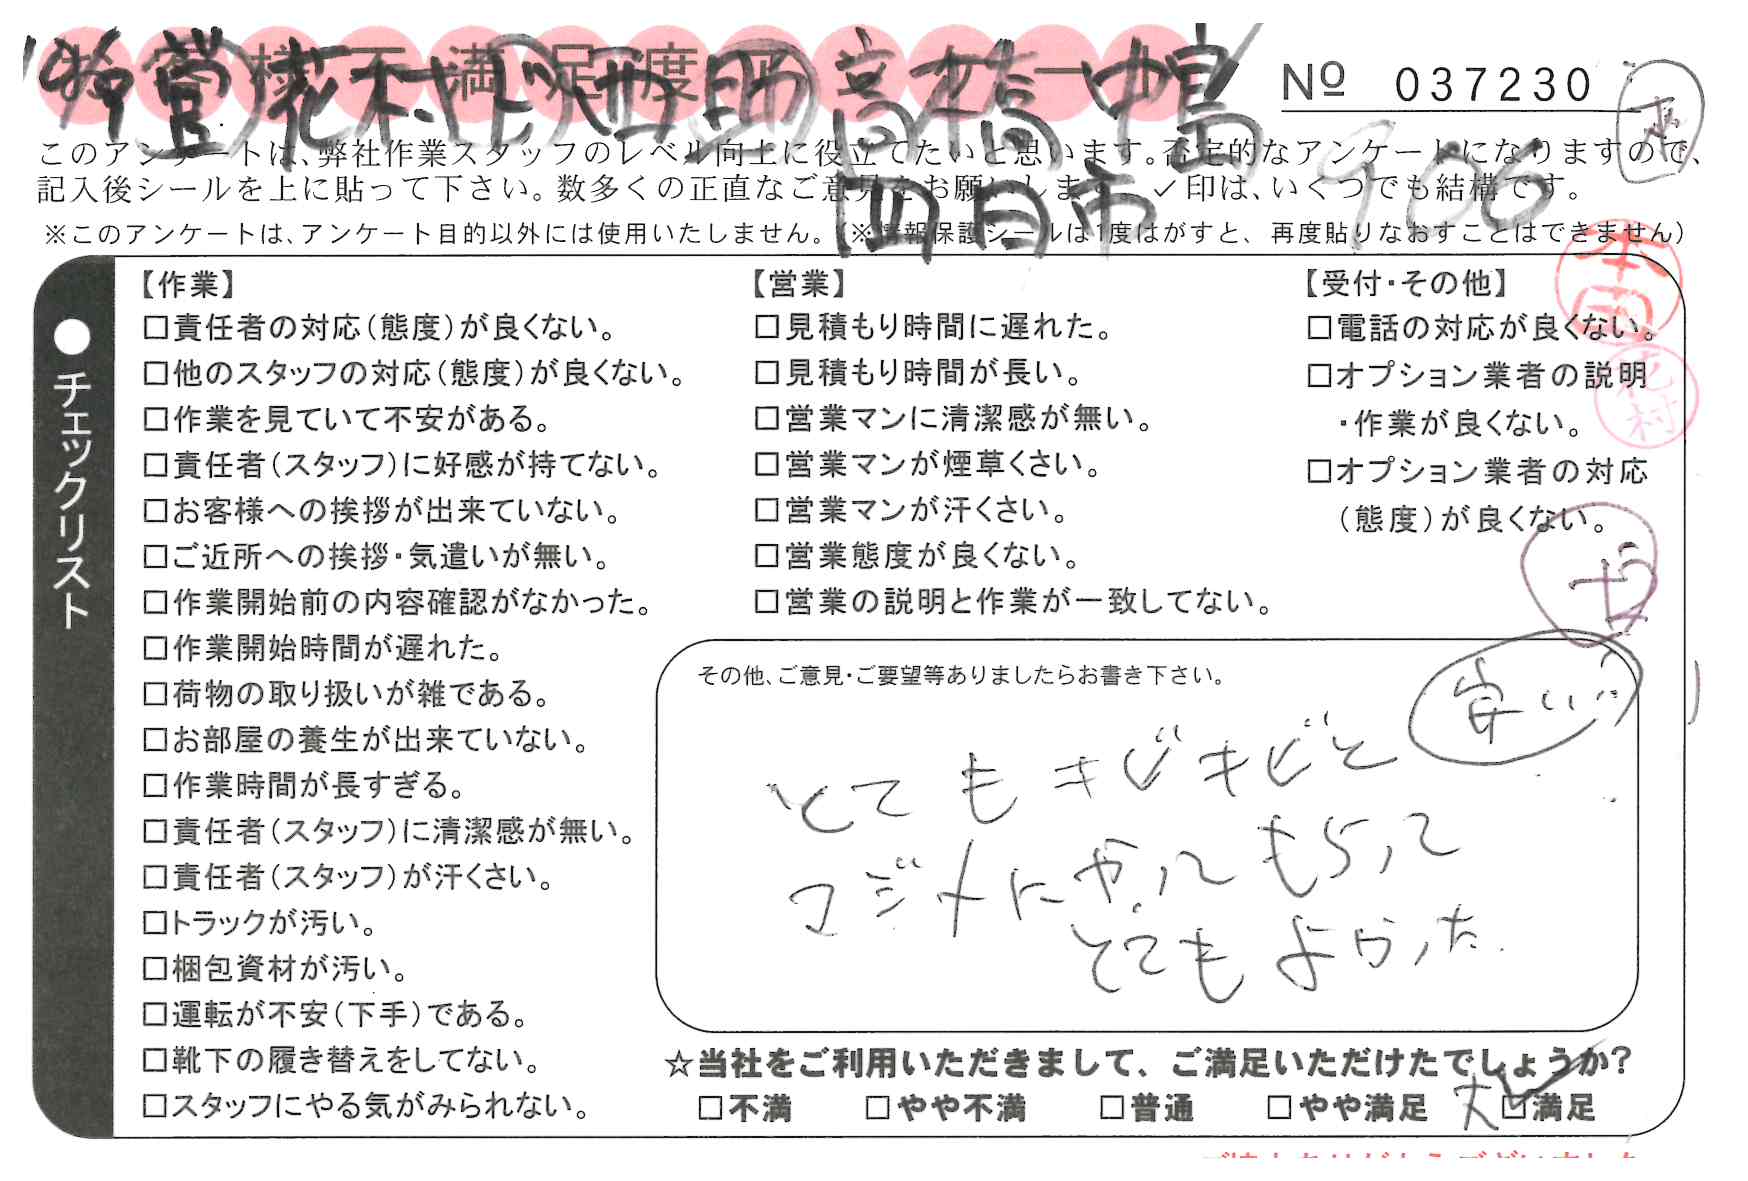 お客様不満足度アンケート
営 花村 西 師 高橋 中島
四日市
№ 037230
900
このアンケートは、弊社作業スタッフのレベル向上に役立てたいと思います。否定的なアンケートになりますので、
記入後シールを上に貼って下さい。数多くの正直なご意見をお願いします。✓印は、いくつでも結構です。
※このアンケートは、アンケート目的以外には使用いたしません。(※情報保護シールは1度はがすと、再度貼りなおすことはできません)
本田
花村
●チェックリスト
【作業】
□責任者の対応(態度)が良くない。
□他のスタッフの対応(態度)が良くない。
□作業を見ていて不安がある。
□責任者(スタッフ)に好感が持てない。
□お客様への挨拶が出来ていない。
□ご近所への挨拶・気遣いが無い。
□作業開始前の内容確認がなかった。
□作業開始時間が遅れた。
□荷物の取り扱いが雑である。
□お部屋の養生が出来ていない。
□作業時間が長すぎる。
□責任者(スタッフ)に清潔感が無い。
□責任者(スタッフ)が汗くさい。
□トラックが汚い。
□梱包資材が汚い。
□運転が不安(下手)である。
□靴下の履き替えをしてない。
□スタッフにやる気がみられない。
【営業】
□見積もり時間に遅れた。
□見積もり時間が長い。
□営業マンに清潔感が無い。
□営業マンが煙草くさい。
□営業マンが汗くさい。
□営業態度が良くない。
□営業の説明と作業が一致してない。
【受付・その他】
□電話の対応が良くない。
□オプション業者の説明
・作業が良くない。
□オプション業者の対応
(態度)が良くない。
その他、ご意見・ご要望等ありましたらお書き下さい。
とてもキビキビと
マジメにやってもらって
とてもよかった.
☆当社をご利用いただきまして、ご満足いただけたでしょうか?
□不満 □やや不満 □普通 □やや満足 大 ☑満足